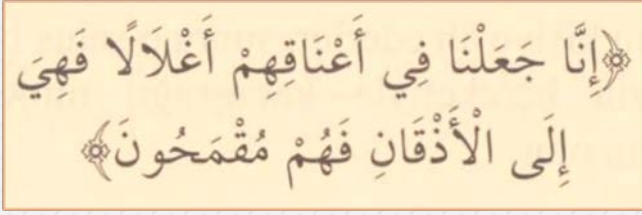 ﴿إِنَّا جَعَلْنَا فِي أَعْنَاقِهِمْ أَغْلَالًا فَهِيَ
إِلَى الْأَذْقَانِ فَهُمْ مُقْمَحُونَ﴾